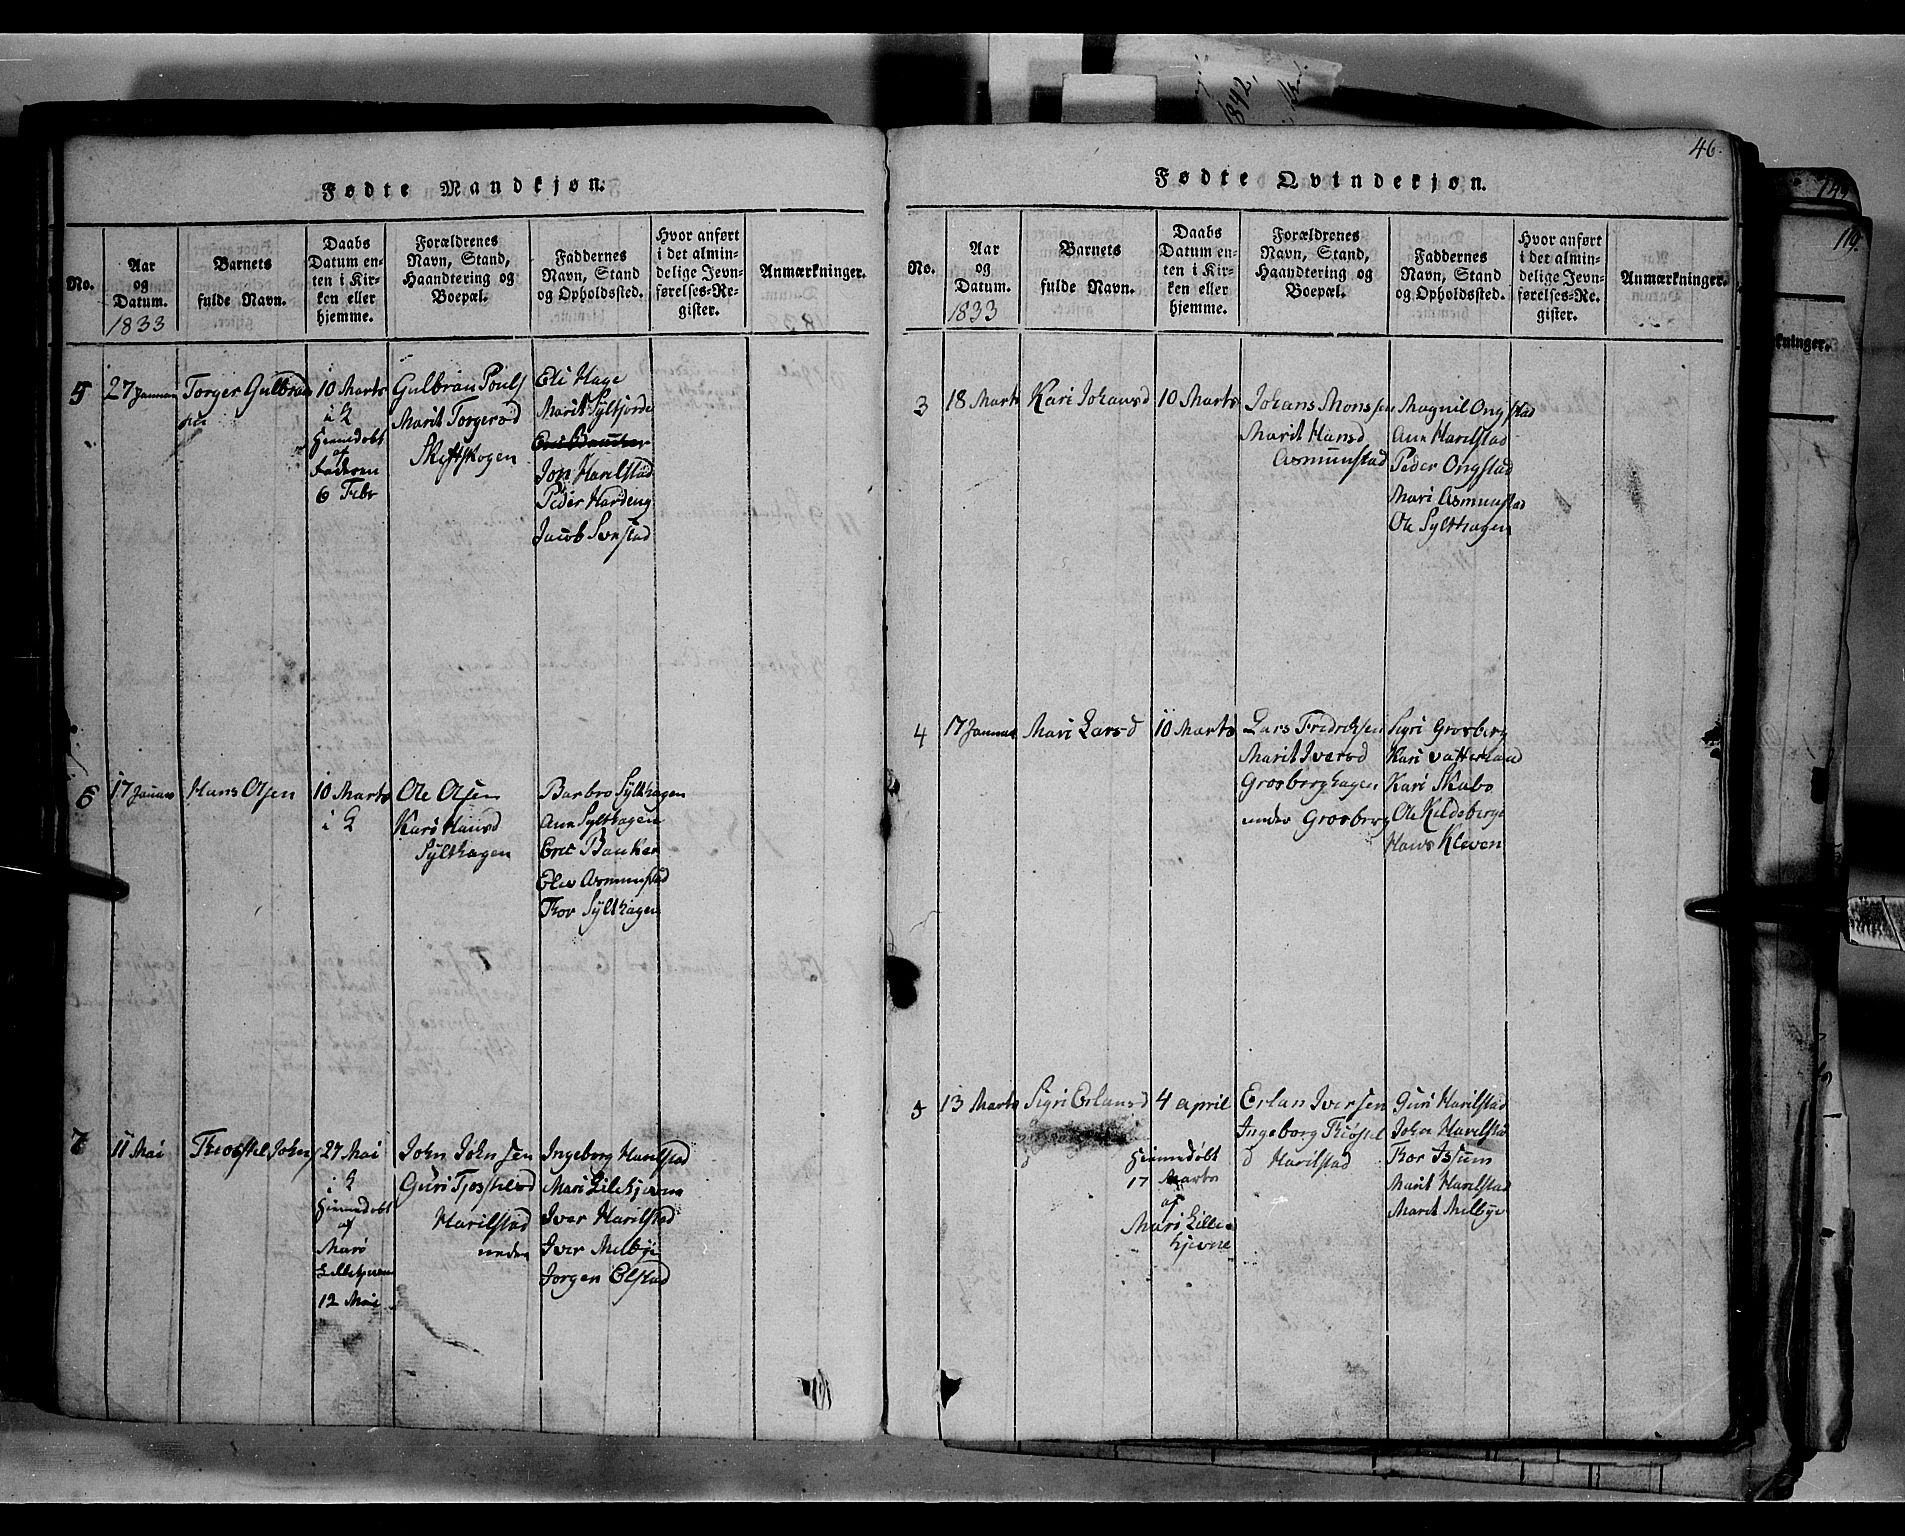 1842,
46.
149
119.
Fødte Mandkjøn.
No.
Aar
og
Datum.
1833
Barnets
fulde Navn.
Daabs
Datum en-
ten i Kir-
ken eller
hjemme.
Forældrenes
Navn, Stand,
Haandtering og
Boepæl.
Faddernes
Navn, Stand
og Opholdssted.
Hvor anført
i det almin-
delige Jevn-
førelses-Re-
gister.
Anmærkninger.
5
27 Januar
Torger Gulbran
sen
10 Marts
i L
Hiemedøbt
af
Faderen
6 Febr
Gulbran Pouls
Marit Torgersd
Skiftskogen
Eli Hage
Marit Syltjorde
Jon Harilstad
Peder Hardeng
Jacob Svestad
6
17 Januar
Hans Olsen
10 Marts
i L
Ole Olsen
Kari Hansd
Sylthagen
Barbro Sylthagen
Ane Sylthagen
Eric Bauker
Elev Asmunstad
Thor Sylthagen
7
11 Mai
Thiostel Johns
27 Mai
i L
Hiemedøbt
af
Mari
Lillekjerne
12 Mai
John Johnsen
Guri Tjostelsd
Harilstad
neden
Ingeborg Harilstad
Mari Lilekjerne
Iver Harilstad
Iver Melbye
Jorgen Olstad
Fødte Qvindekjøn.
No.
Aar
og
Datum.
1833
Barnets
fulde Navn.
Daabs
Datum en-
ten i Kir-
ken eller
hjemme.
Forældrenes
Navn, Stand,
Haandtering og
Boepæl.
Faddernes
Navn, Stand
og Opholdssted.
Hvor anført
i det almin-
delige Jevn-
førelses-Re-
gister.
Anmærkninger.
kninger.
3
18 Marts
Kari Johansd
10 Marts
Johans Monssen
Marit Hansd
Asmunstad
Magnil Ongstad
Ane Harilstad
Peder Ongstad
Mari Asmunstad
Ole Sylthagen
4
17 Januar
Mari Larsd
10 Marts
Lars Fredriksen
Marit Iversd
Grosberghagen
under Grosberg
Sigri Grosberg
Kari Vatterland
Kari Skabo
Ole Kildeberge
Hans Kleven
5
13 Marts
Sigri Erlansd
4 april
Hiemedøbt
17 Marts
af
Mari Lille
kjerne
Erlan Iversen
Ingeborg Thiostel
d Harilstad
Guri Harilstad
John Harilstad
Thor Isum
Marit Harilstad
Marit Melbye